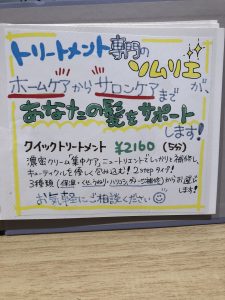 トリートメント専門の
ソムリエが、
ホームケアからサロンケアまで
あなたの髪をサポート
します!
クイックトリートメント ¥2160 (5分)
濃密クリーム集中ケア。ニュートリエントでしっかりと補修し、
キューティクルを優しく包み込む! 2stepタイプ!
3種類 (保湿・くせ、うねり・ハリコシ、ダメージ補修) からお選び
します!
お気軽にご相談ください